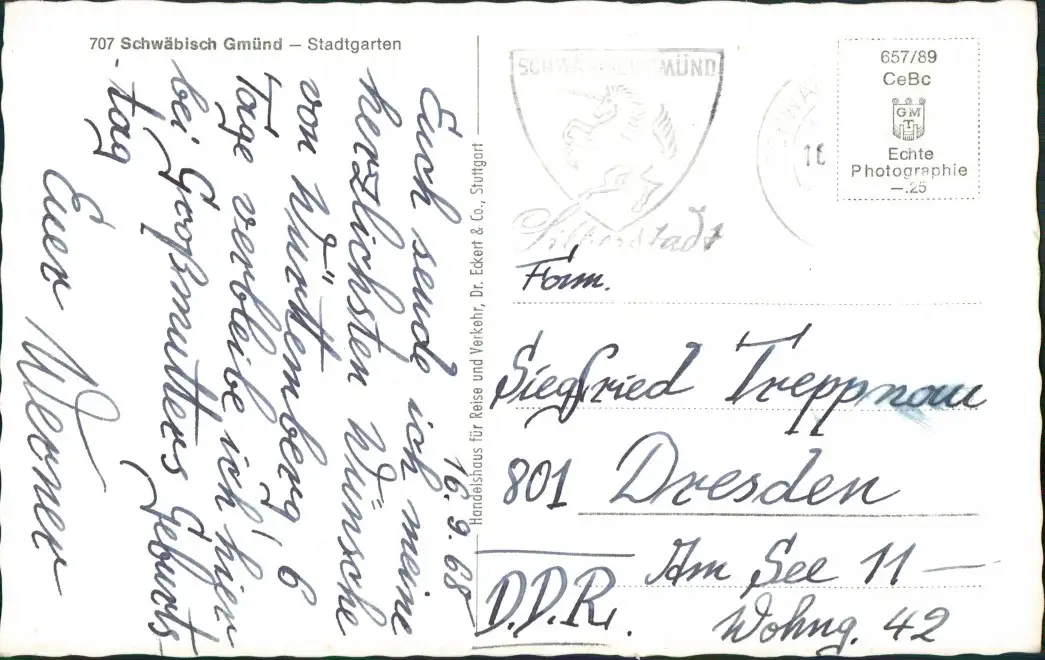 707 Schwäbisch Gmünd – Stadtgarten
16.9.68
Euch sende ich meine
herzlichsten Wünsche
von Württemberg, 6
Tage verbleibe ich hier
bei Großmutters Geburts-
tag
Euer Werner
Handelshaus für Reise und Verkehr, Dr. Eckert & Co., Stuttgart
SCHWÄBISCH GMÜND
Silberstadt
657/89
CeBc
GM
Echte
Photographie
–.25
Fam.
Siegfried Treppnau
801 Dresden
Am See 11 –
D.D.R.
Wohng. 42